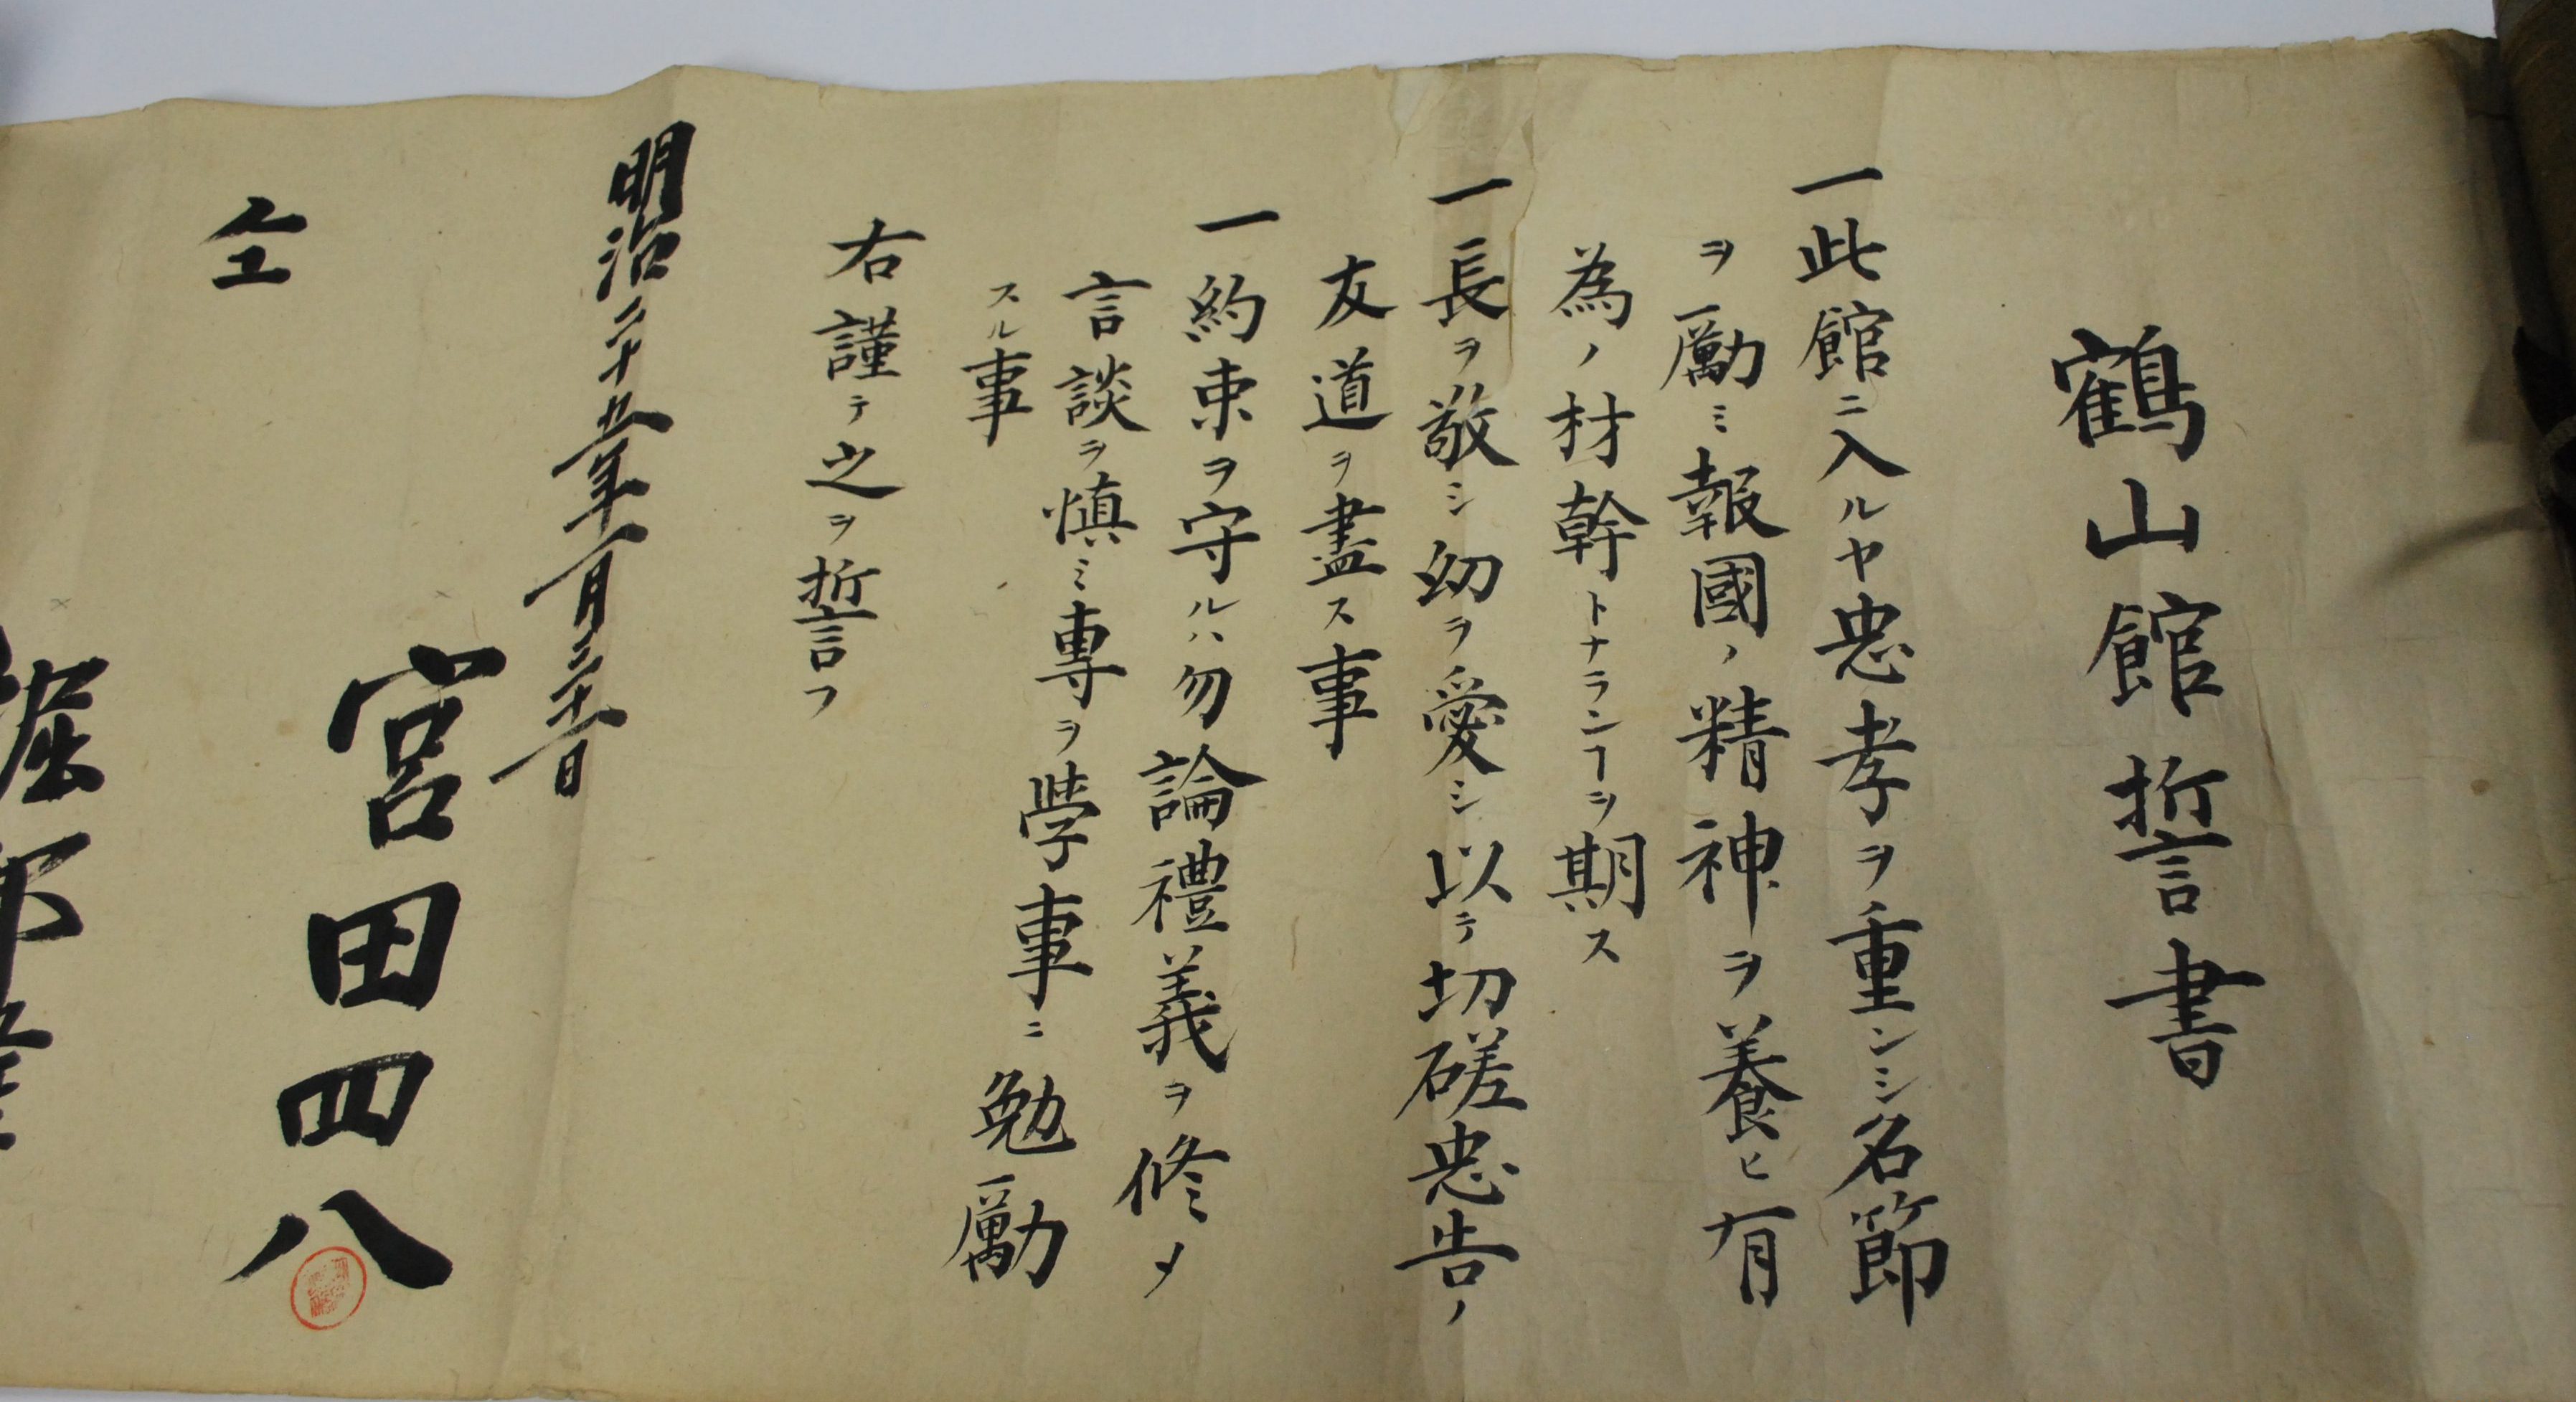 鶴山館誓書
一此館ニ入ルヤ忠孝ヲ重ンシ名節
ヲ勵ミ報國ノ精神ヲ養ヒ有
為ノ材幹トナランヿヲ期ス
一長ヲ敬シ幼ヲ愛シ以テ切磋忠告ノ
友道ヲ盡ス事
一約束ヲ守ルハ勿論禮義ヲ修メ
言談ヲ慎ミ專ヲ學事ニ勉勵
スル事
右謹テ之ヲ誓フ
明治二十九年一月三十一日
宮田四八
仝
堀部